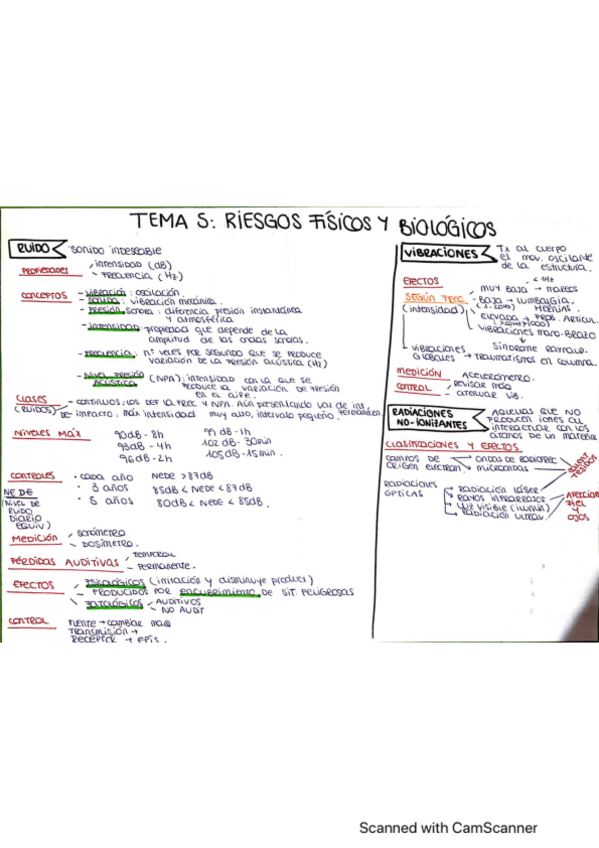 TEMA 5: RIESGOS FÍSICOS Y BIOLÓGICOS
RUIDO sonido indeseable
PROPIEDADES intensidad (dB)
Frecuencia (Hz)
CONCEPTOS - vibración: oscilación.
- sonido: vibración mecánica.
- PRESIÓN sonora: diferencia presión instantánea
y atmosférica
- intensidad: propiedad que depende de la
amplitud de las ondas sonoras.
- FRECUENCIA: nº veces por segundo que se produce
variación de la presión acústica (Hz)
- NIVEL PRESIÓN
ACÚSTICA (NPA): intensidad con la que se
produce la variación de presión
en el aire.
CLASES - CONTINUOS: los def la frec y NPA. Aún presentando var de int,
(RUIDOS) permanecen
- DE IMPACTO: máx intensidad muy alto, intervalo pequeño.
NIVELES MÁX 90dB - 8h 99 dB - 1h
93dB - 4h 102 dB - 30min
96dB - 2h 105dB - 15min.
CONTROLES • cada año NEDE > 87dB
• 3 años 85dB < NEDE < 87dB
• 5 años 80dB < NEDE < 85dB.
NEDE
(NIVEL DE
RUIDO
DIARIO
EQUIV)
MEDICIÓN - sonómetro
- Dosímetro.
PÉRDIDAS AUDITIVAS - TEMPORAL
- PERMANENTE.
EFECTOS - PSICOLÓGICOS (irritación y disminuye product)
- PRODUCIDOS POR encubrimiento DE SIT. PELIGROSAS
- PATOLÓGICOS - AUDITIVOS
- NO AUDIT
CONTROL FUENTE → cambiar maq
TRANSMISIÓN →
RECEPTOR → EPIs.
VIBRACIONES Tx al cuerpo
el mov. oscilante
de la estructura.
EFECTOS
SEGÚN FREC.
(intensidad)
MUY BAJA → mareos
BAJA → LUMBALGIA,
HERNIAS.
ELEVADA → PROB. ARTICUL.
VIBRACIONES MANO-BRAZO
↓
Síndrome Raynaud.
VIBRACIONES
GLOBALES → TRAUMATISMOS EN COLUMNA.
MEDICIÓN Acelerómetro.
CONTROL - Revisar máq
- atenuar vib.
RADIACIONES
NO-IONIZANTES
AQUELLAS QUE NO
PRODUCEN IONES AL
interactuar con los
átomos de un material
Clasificaciones y EFECTOS
CAMPOS DE
ORIGEN ELECTROM
ONDAS DE RADIOFREC
microondas
TEJIDOS
RADIACIONES
ÓPTICAS
RADIACIÓN LÁSER
RAYOS INFRARROJOS
LUZ VISIBLE (ilumin)
RADIACIÓN ULTRAV.
AFECCIÓN
PIEL
Y
OJOS
Scanned with CamScanner